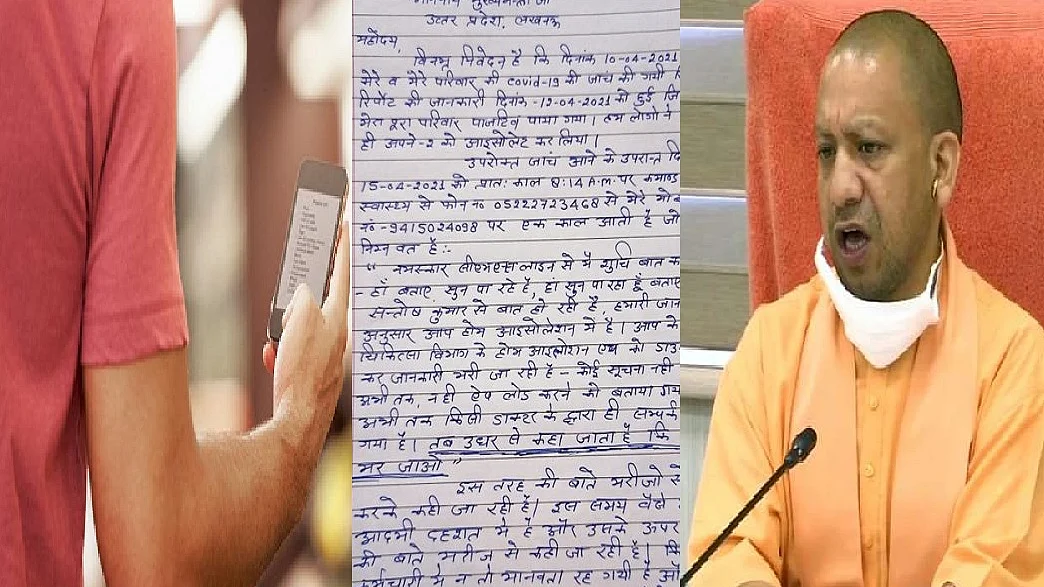 माननीय मुख्यमंत्री जी
उत्तर प्रदेश, लखनऊ
महोदय,
विनम्र निवेदन है कि दिनांक 10-04-2021
मेरे व मेरे परिवार की covid-19 की जांच की गयी
रिपोर्ट की जानकारी दिनांक -12-04-2021 को हुई
मेरा पूरा परिवार पाजटिव पाया गया। हम लोगो ने
ही अपने-2 को आइसोलेट कर लिया।
उपरोक्त जांच आने के उपरान्त
15-04-2021 को प्रातः काल 8:14 A.m. पर
स्वास्थ्य से फोन न० 05222723468 से मेरे
न० -9415024098 पर एक काल आती है जो
निम्न वत है:-
" नमस्कार सीएमएस लाइन से मै शुचि बात
- हाँ बताए, सुन पा रहे है, हाँ सुन पा रहा हूँ बताए
सन्तोष कुमार से बात हो रही है, हमारी
अनुसार आप होम आइसोलेशन में है। आप के
चिकित्सा विभाग के होम आइसोशन एप को
कर जानकारी भरी जा रही है - कोई सूचना नही
अभी तक, नही ऐप लोड करने को बताया
अभी तक किसी डाक्टर के द्वारा ही सम्पर्क
गया है। तब उधर से कहा जाता है कि
मर जाओ "
इस तरह की बाते मरीजो से
करके कही जा रही है। इस समय वैसे
आदमी दहशत मे है और उसके ऊपर
की बाते मरीज से कही जा रही है।
कर्मचारी मे न तो मानवता रह गयी है